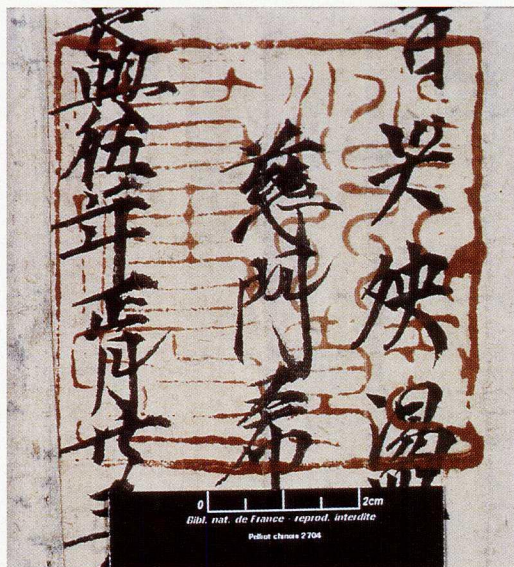 災殃湯
慈門希
長興伍年正月廿三
0 2cm
Bibl. nat. de France - reprod. interdite
Pelliot chinois 2704